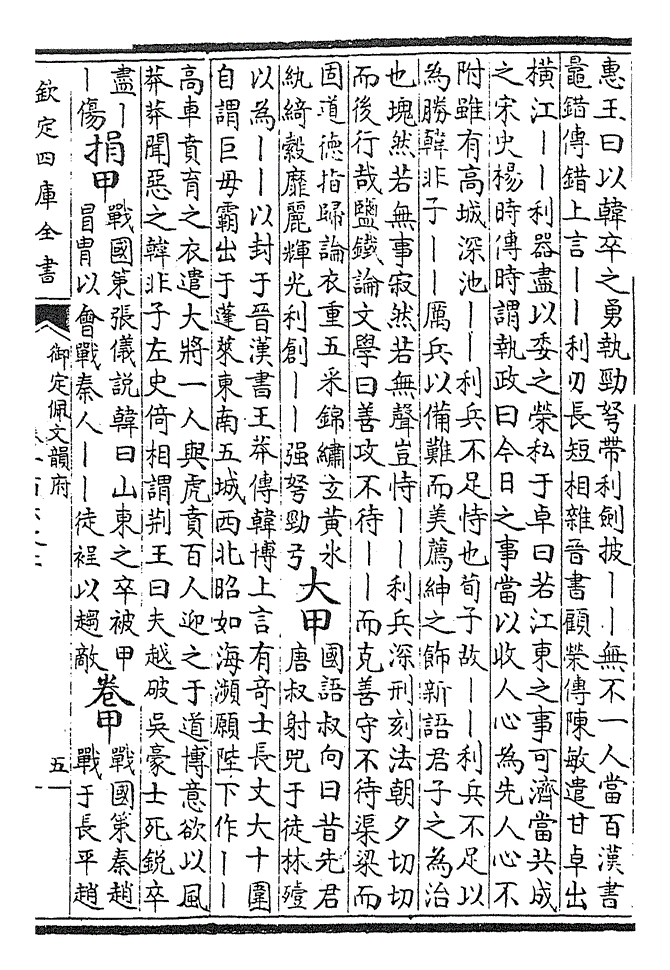 惠王曰以韓卒之勇執勁弩帶利劍披——無不一人當百漢書
鼂錯傳錯上言——利刃長短相雜晉書顧榮傳陳敏遣甘卓出
橫江——利器盡以委之榮私于卓曰若江東之事可濟當共成
之宋史楊時傳時謂執政曰今日之事當以收人心為先人心不
附雖有高城深池——利兵不足恃也荀子故——利兵不足以
為勝韓非子——厲兵以備難而美薦紳之飾新語君子之為治
也塊然若無事寂然若無聲豈恃——利兵深刑刻法朝夕切切
而後行哉鹽鐵論文學曰善攻不待——而克善守不待渠梁而
固道德指歸論衣重五采錦繡玄黃氷
紈綺縠靡麗輝光利創——强弩勁弓
大甲
國語叔向曰昔先君
唐叔射兕于徒林殪
以為——以封于晉漢書王莽傳韓博上言有奇士長丈大十圍
自謂巨毋霸出于蓬萊東南五城西北昭如海瀕願陛下作——
高車賁育之衣遣大將一人與虎賁百人迎之于道博意欲以風
莽莽聞惡之韓非子左史倚相謂荆王曰夫越破吳豪士死銳卒
盡—
—傷
捐甲
戰國策張儀說韓曰山東之卒被甲
冒胄以會戰秦人——徒裎以趨敵
卷甲
戰國策秦趙
戰于長平趙
欽定四庫全書
御定佩文韻府
五